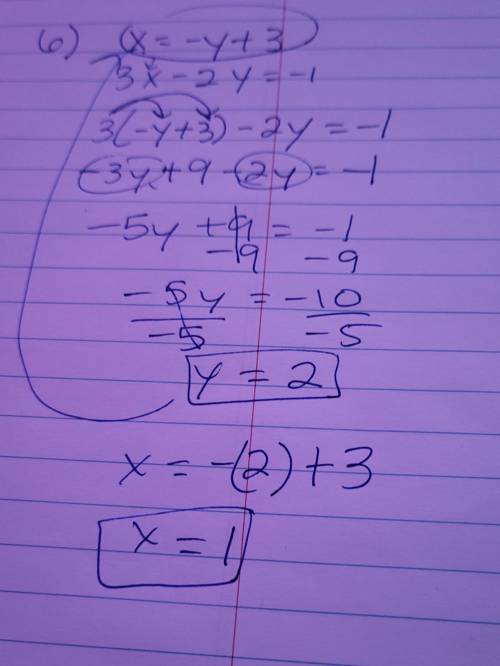 6) x = -y + 3
3x - 2y = -1
3(-y + 3) - 2y = -1
-3y + 9 - 2y = -1
-5y + 9 = -1
-9 -9
-5y = -10
-5 -5
y = 2
x = -(2) + 3
x = 1